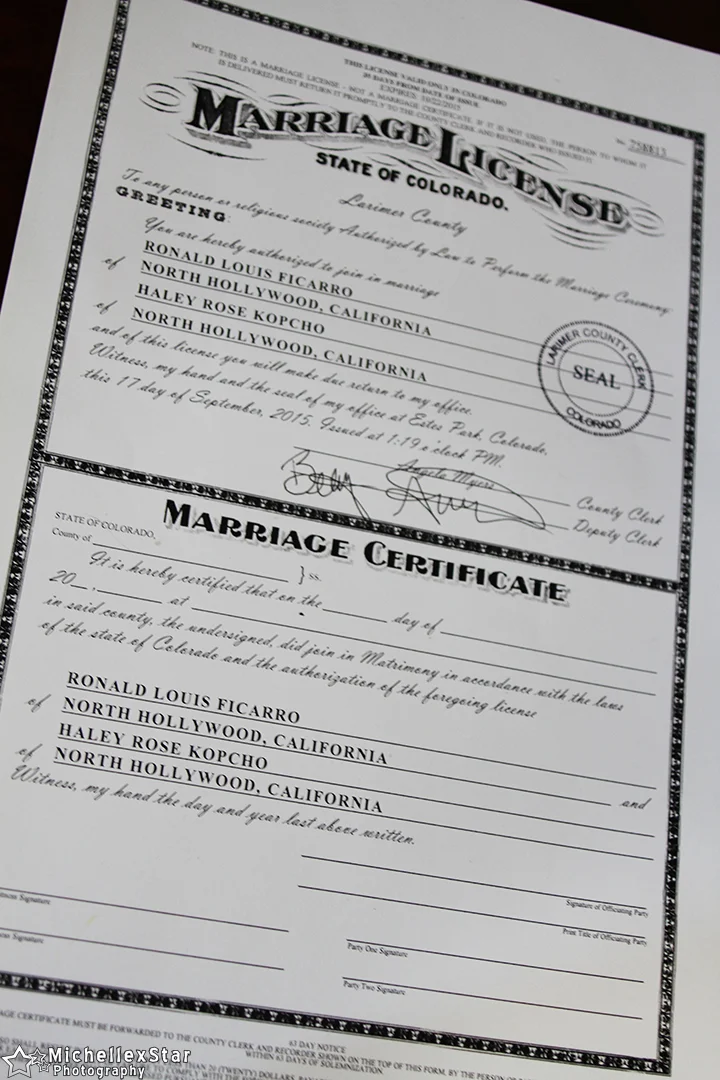 THIS LICENSE VALID ONLY IN COLORADO
35 DAYS FROM DATE OF ISSUE
EXPIRES: 10/22/2015
NOTE: THIS IS A MARRIAGE LICENSE - NOT A MARRIAGE CERTIFICATE. IF IT IS NOT USED, THE PERSON TO WHOM IT
IS DELIVERED MUST RETURN IT PROMPTLY TO THE COUNTY CLERK AND RECORDER WHO ISSUED IT
No. 258813
MARRIAGE LICENSE
STATE OF COLORADO.
Larimer County
To any person or religious society Authorized by Law to Perform the Marriage Ceremony:
GREETING:
You are hereby authorized to join in marriage
RONALD LOUIS FICARRO
of NORTH HOLLYWOOD, CALIFORNIA
HALEY ROSE KOPCHO
of NORTH HOLLYWOOD, CALIFORNIA
and of this license you will make due return to my office.
Witness, my hand and the seal of my office at Estes Park, Colorado,
this 17 day of September, 2015, Issued at 1:19 o'clock PM.
LARIMER COUNTY CLERK
SEAL
COLORADO
Angela Myers County Clerk
Deputy Clerk
MARRIAGE CERTIFICATE
STATE OF COLORADO,
County of } ss.
It is hereby certified that on the day of
20 , at
in said county, the undersigned, did join in Matrimony in accordance with the laws
of the state of Colorado and the authorization of the foregoing license
RONALD LOUIS FICARRO
of NORTH HOLLYWOOD, CALIFORNIA and
HALEY ROSE KOPCHO
of NORTH HOLLYWOOD, CALIFORNIA
Witness, my hand the day and year last above written.
Signature of Officiating Party
Print Title of Officiating Party
Signature
Party One Signature
Signature
Party Two Signature
63 DAY NOTICE
CERTIFICATE MUST BE FORWARDED TO THE COUNTY CLERK AND RECORDER SHOWN ON THE TOP OF THIS FORM, BY THE
WITHIN 63 DAYS OF SOLEMNIZATION
MichellexStar
Photography